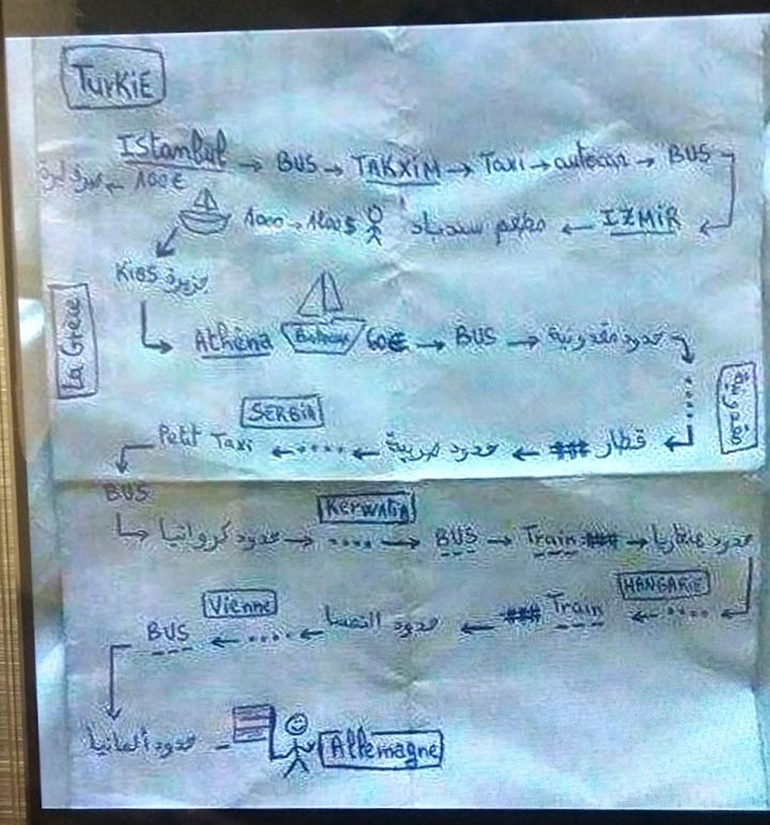 TurKiE
IStanbul → BUS → TAKXiM → Taxi → autocar → BUS
100€
IZMiR ← مطعم سندباد 1000 → 1200$
Kios جزيرة
La Grece
Athéna 60€ → BUS → حدود مقدونية
قطار ← حدود صربية ← Petit Taxi
SERBiA
BUS
KerwaTia
حدود كرواتيا → BUS → Train → حدود هنغاريا
HANGARiE
Train ← حدود النمسا ← BUS
Vienne
حدود ألمانيا
Allemagne